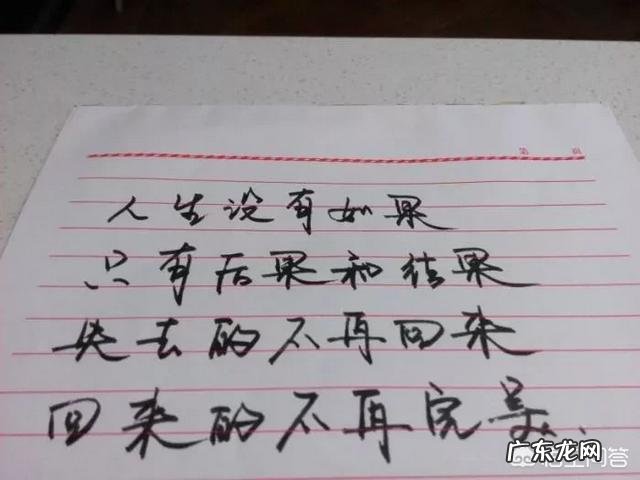 第 页
人生没有如果
只有后果和结果
失去的不再回来
回来的不再完美
广东龙网
悟空问答